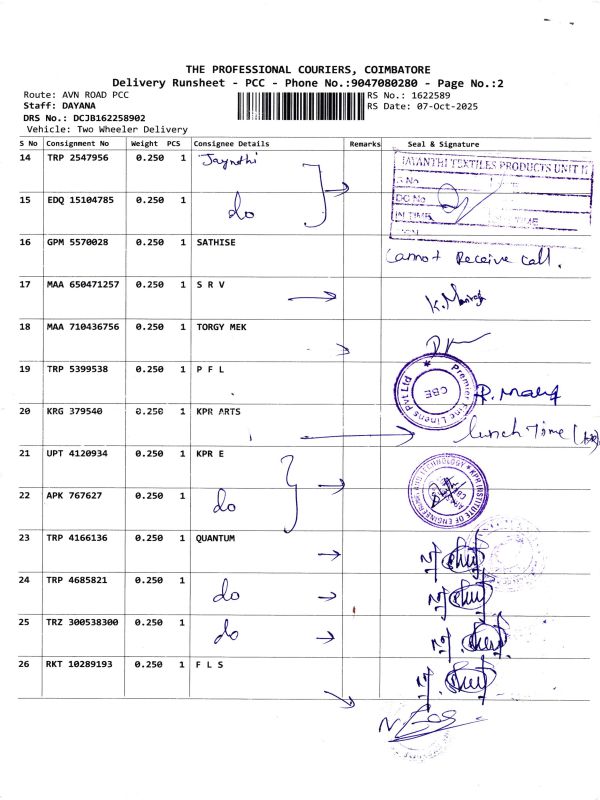 THE PROFESSIONAL COURIERS, COIMBATORE
Delivery Runsheet - PCC - Phone No.:9047080280 - Page No.:2
Route: AVN ROAD PCC
RS No.: 1622589
Staff: DAYANA
RS Date: 07-Oct-2025
DRS No.: DCJB162258902
Vehicle: Two Wheeler Delivery
S No Consignment No Weight PCS Consignee Details Remarks Seal & Signature
14 TRP 2547956 0.250 1 Jaynthi
JAYANTHI TEXTILES PRODUCTS UNIT II
S.No
DC No
IN TIME
TIME
15 EDQ 15104785 0.250 1 do
16 GPM 5570028 0.250 1 SATHISE
Cannot Receive call.
17 MAA 650471257 0.250 1 S R V
18 MAA 710436756 0.250 1 TORGY MEK
19 TRP 5399538 0.250 1 P F L
Premier Fine Linens Pvt Ltd
CBE
20 KRG 379540 0.250 1 KPR ARTS
lunch Time
21 UPT 4120934 0.250 1 KPR E
KPR INSTITUTE OF ENGINEERING AND TECHNOLOGY
22 APK 767627 0.250 1 do
23 TRP 4166136 0.250 1 QUANTUM
24 TRP 4685821 0.250 1 do
25 TRZ 300538300 0.250 1 do
26 RKT 10289193 0.250 1 F L S